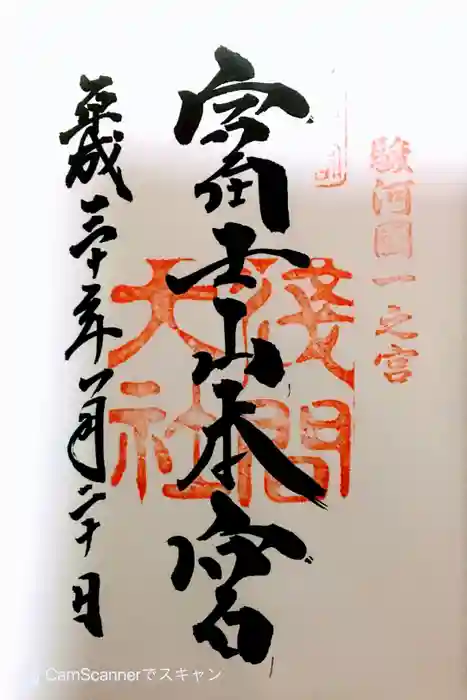 駿河國一之宮
富士山本宮
淺間
大社
平成三十年八月二十日
CamScannerでスキャン